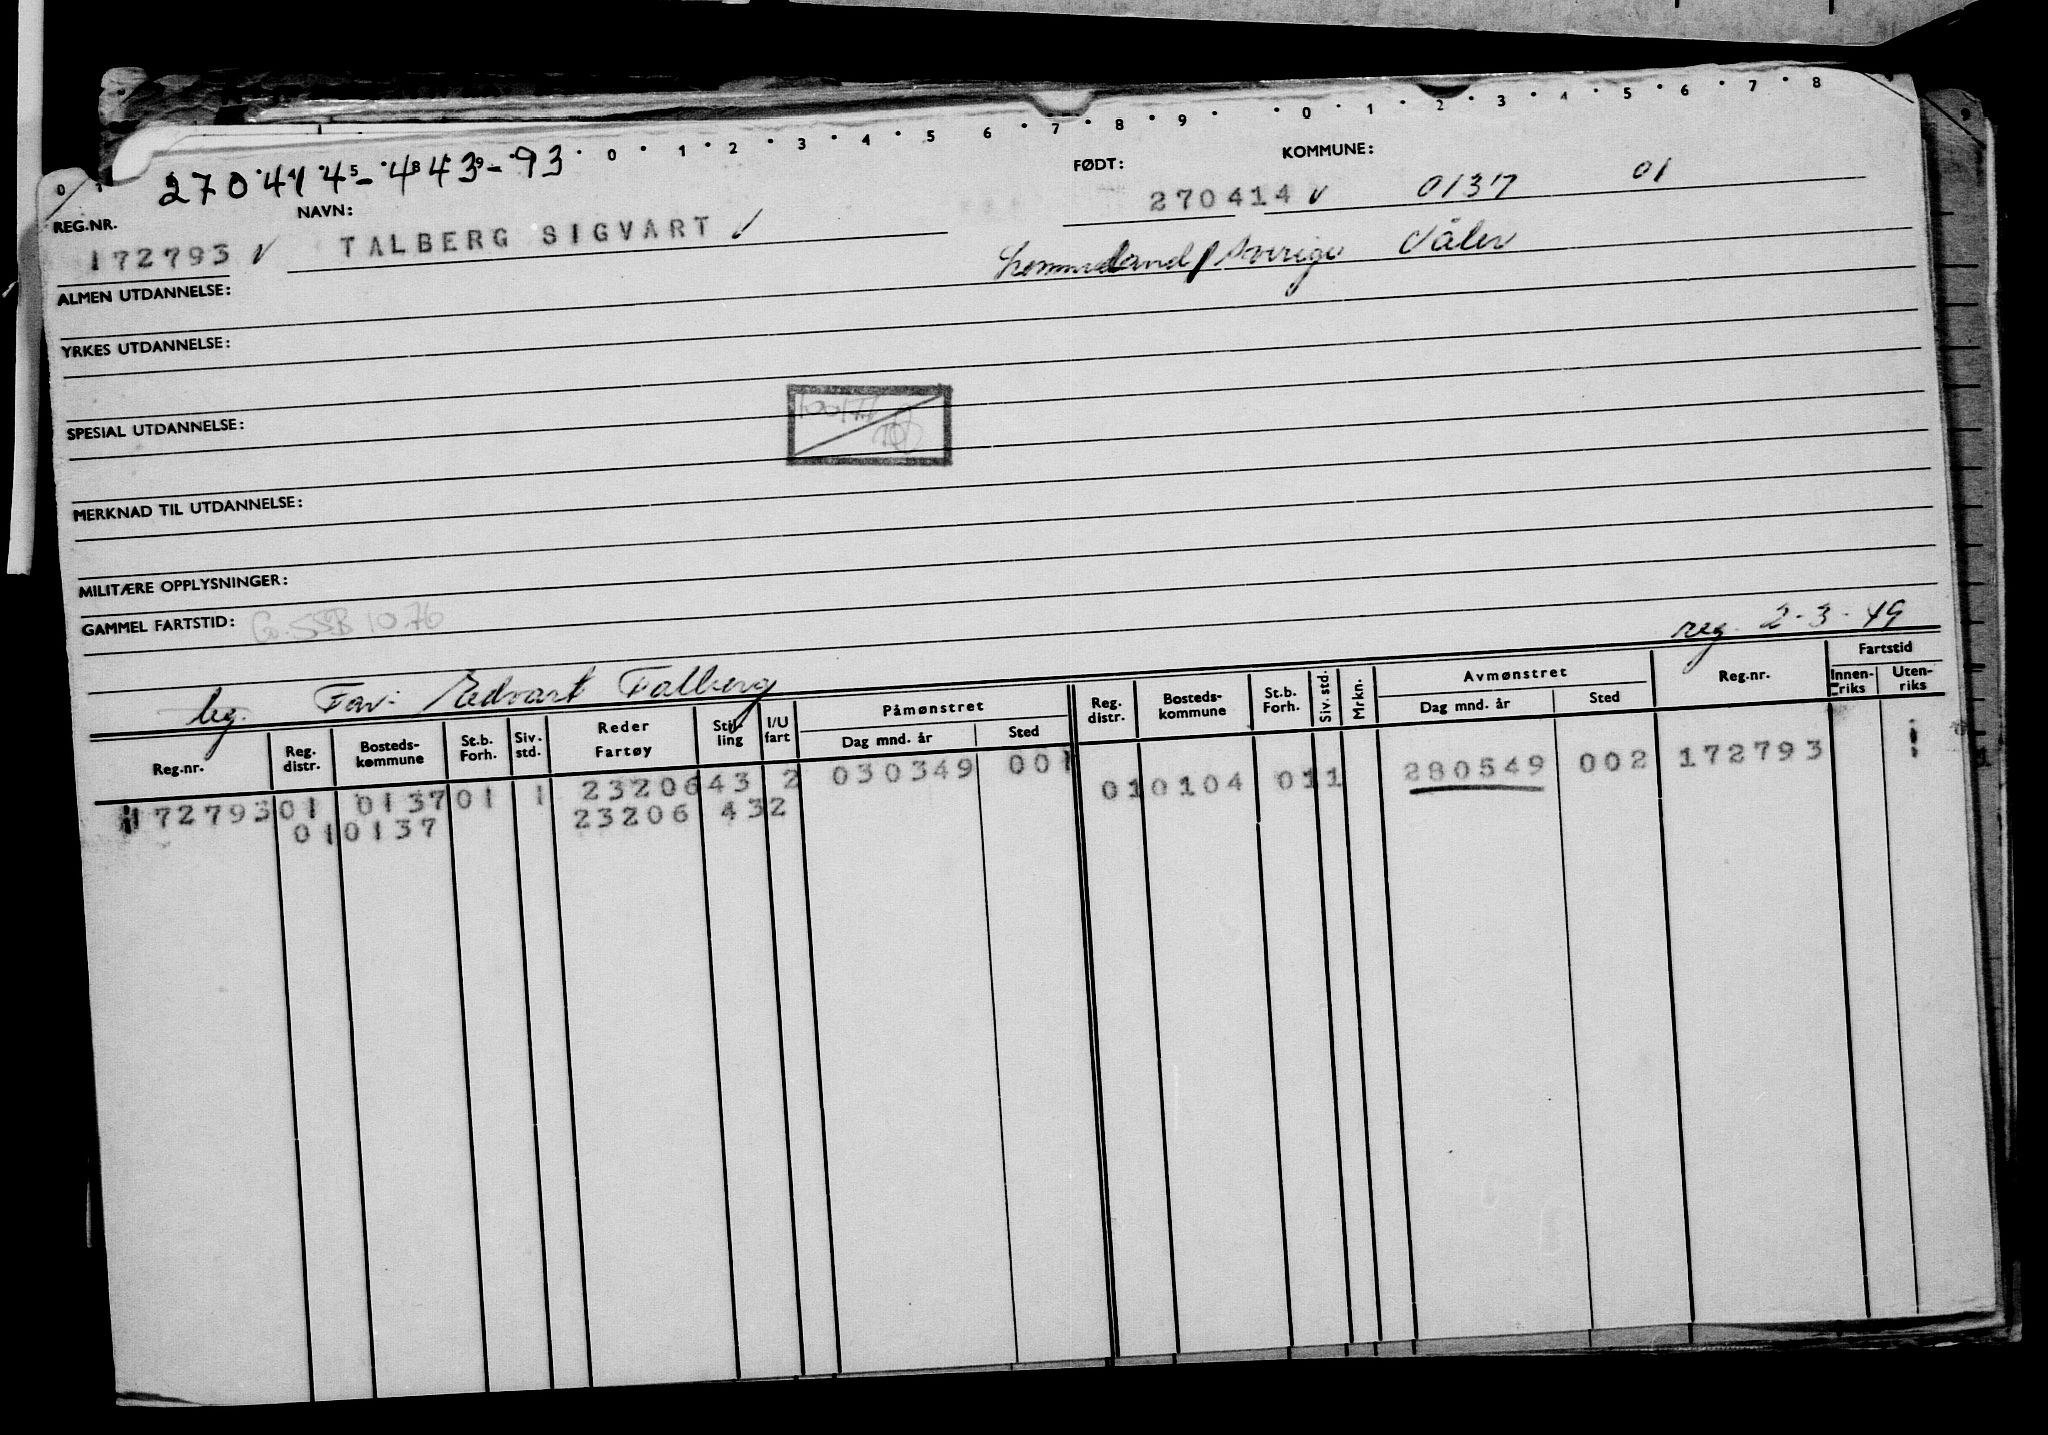 0 1 2 3 4 5 6 7 8 9 0 1 2 3 4 5 6 7 8
270414-44343-93
REG.NR. NAVN: FØDT: KOMMUNE:
172793 v TALBERG SIGVART ✓ 270414 v 0137 01
Sverige Våler
ALMEN UTDANNELSE:
YRKES UTDANNELSE:
SPESIAL UTDANNELSE:
MERKNAD TIL UTDANNELSE:
MILITÆRE OPPLYSNINGER:
GAMMEL FARTSTID: SSB 10.76
reg. 2-3-49
leg. Far: Edvart Talberg
Reg.nr. Reg. distr. Bosteds-kommune St.b. Forh. Siv. std. Reder Fartøy Stilling I/U fart Påmønstret Dag mnd. år Sted Reg. distr. Bosteds-kommune St.b. Forh. Siv. std. Mrkn. Avmønstret Dag mnd. år Sted Reg.nr. Fartstid Innen-riks Uten-riks
172793 01 0137 01 1 23206 43 2 030349 001 01 0104 01 1 280549 002 172793
01 0137 23206 43 2